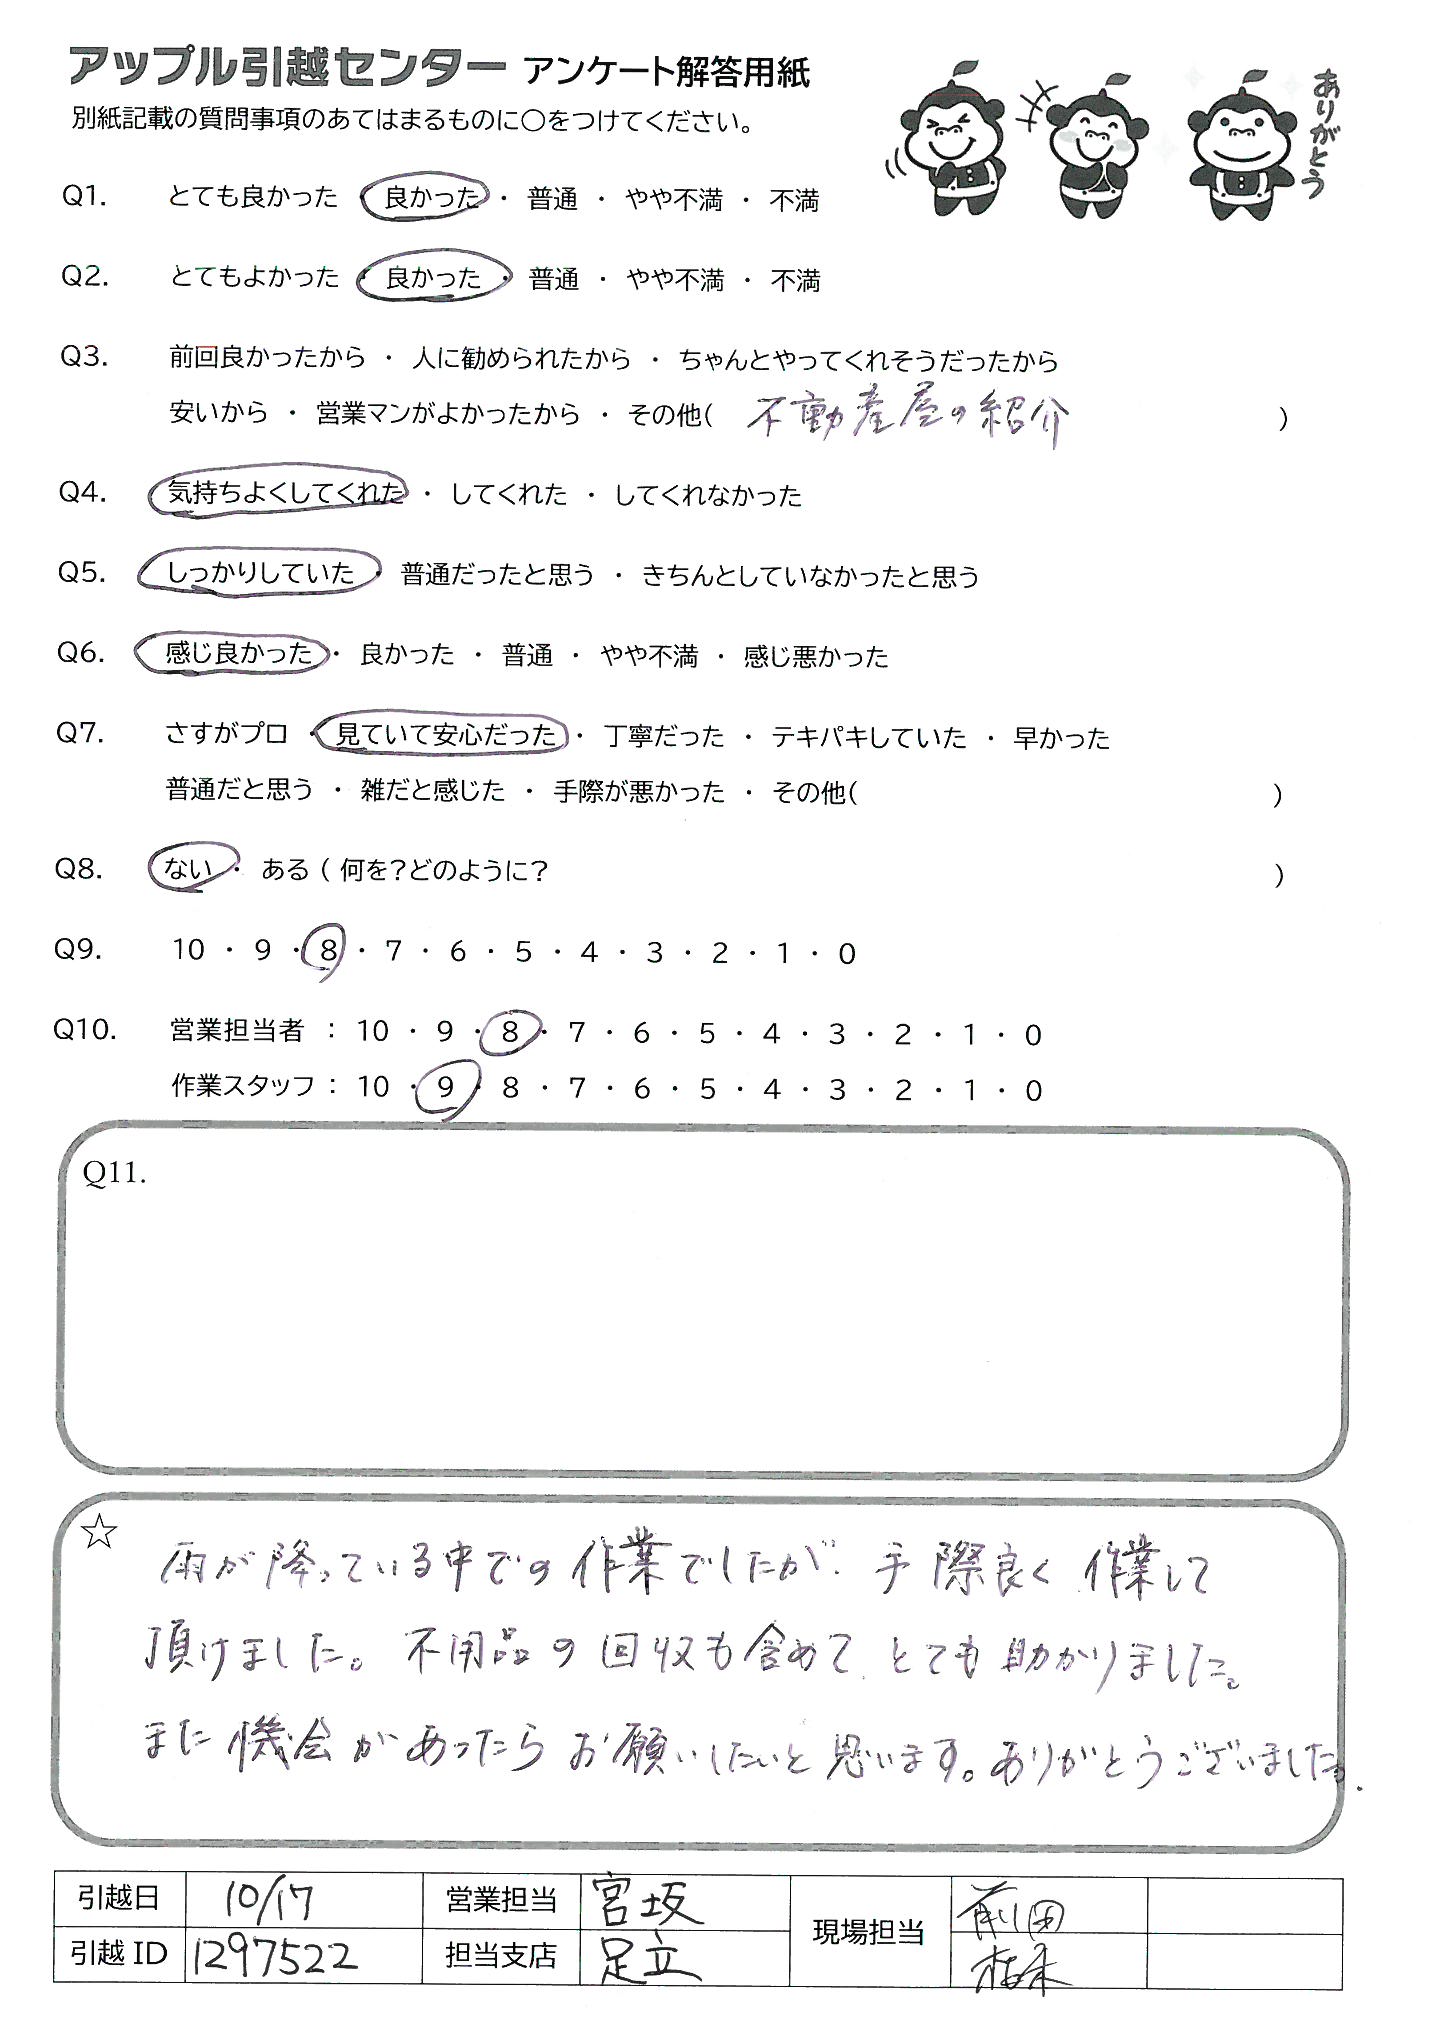 アップル引越センター アンケート解答用紙
別紙記載の質問事項のあてはまるものに○をつけてください。
ありがとう
Q1. とても良かった 良かった ・ 普通 ・ やや不満 ・ 不満
Q2. とてもよかった ・ 良かった ・ 普通 ・ やや不満 ・ 不満
Q3. 前回良かったから ・ 人に勧められたから ・ ちゃんとやってくれそうだったから
安いから ・ 営業マンがよかったから ・ その他( 不動産屋の紹介 )
Q4. 気持ちよくしてくれた ・ してくれた ・ してくれなかった
Q5. しっかりしていた ・ 普通だったと思う ・ きちんとしていなかったと思う
Q6. 感じ良かった ・ 良かった ・ 普通 ・ やや不満 ・ 感じ悪かった
Q7. さすがプロ ・ 見ていて安心だった ・ 丁寧だった ・ テキパキしていた ・ 早かった
普通だと思う ・ 雑だと感じた ・ 手際が悪かった ・ その他( )
Q8. ない ・ ある ( 何を?どのように? )
Q9. 10 ・ 9 ・ 8 ・ 7 ・ 6 ・ 5 ・ 4 ・ 3 ・ 2 ・ 1 ・ 0
Q10. 営業担当者 : 10 ・ 9 ・ 8 ・ 7 ・ 6 ・ 5 ・ 4 ・ 3 ・ 2 ・ 1 ・ 0
作業スタッフ : 10 ・ 9 ・ 8 ・ 7 ・ 6 ・ 5 ・ 4 ・ 3 ・ 2 ・ 1 ・ 0
Q11.
☆ 雨が降っている中での作業でしたが、手際良く作業して
頂けました。不用品の回収も含めて、とても助かりました。
また機会があったらお願いしたいと思います。ありがとうございました。
引越日 10/17 営業担当 宮坂 現場担当 前田
引越ID 1297522 担当支店 足立